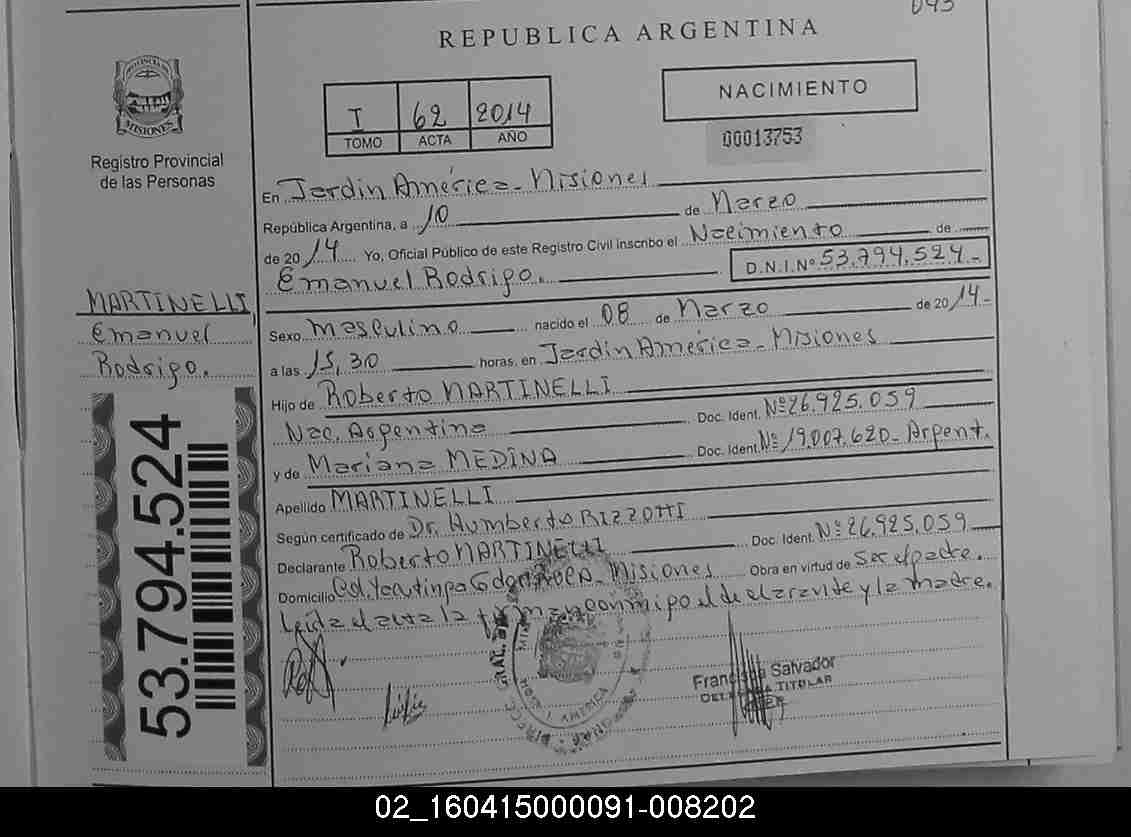 043
REPUBLICA ARGENTINA
PROVINCIA DE
MISIONES
Registro Provincial
de las Personas
I 62 2014
TOMO ACTA AÑO
NACIMIENTO
00013753
En Jardin América - Misiones
República Argentina, a 10 de Marzo
de 2014 Yo, Oficial Público de este Registro Civil inscribo el Nacimiento de
Emanuel Rodrigo. D.N.I.Nº 53.794.524-
MARTINELLI
Emanuel
Rodrigo.
53.794.524
Sexo masculino nacido el 08 de Marzo de 2014-
a las 15,30 horas, en Jardin América - Misiones
Hijo de Roberto MARTINELLI
Nac. Argentina Doc. Ident. Nº 26.925.059
y de Mariana MEDINA Doc. Ident. Nº 19.007.620- Argent.
Apellido MARTINELLI
Según certificado de Dr. Humberto RIZZOTTI
Declarante Roberto MARTINELLI Doc. Ident. Nº 26.925.059
Domicilio Misiones Obra en virtud de Ser el padre.
Leida el acta la firman conmigo el declarante y la madre.
Francisca Salvador
TITULAR
02_160415000091-008202